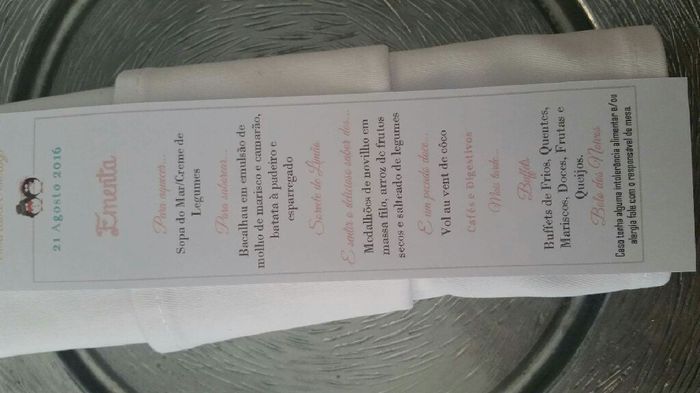 21 Agosto 2016
Ementa
Para aquecer...
Sopa do Mar/Creme de
Legumes
Para saborear...
Bacalhau em emulsão de
molho de marisco e camarão,
batata à padeiro e
esparregado
Sorvete de Limão
E sentir o delicioso sabor dos...
Medalhões de novilho em
massa filo, arroz de frutos
secos e salteado de legumes
E um pecado doce...
Vol au vent de côco
Cafés e Digestivos
Mais tarde...
Buffets
Buffets de Frios, Quentes,
Mariscos, Doces, Frutas e
Queijos.
Bolo dos Noivos
Caso tenha alguma intolerância alimentar e/ou
alergia fale com o responsável de mesa.